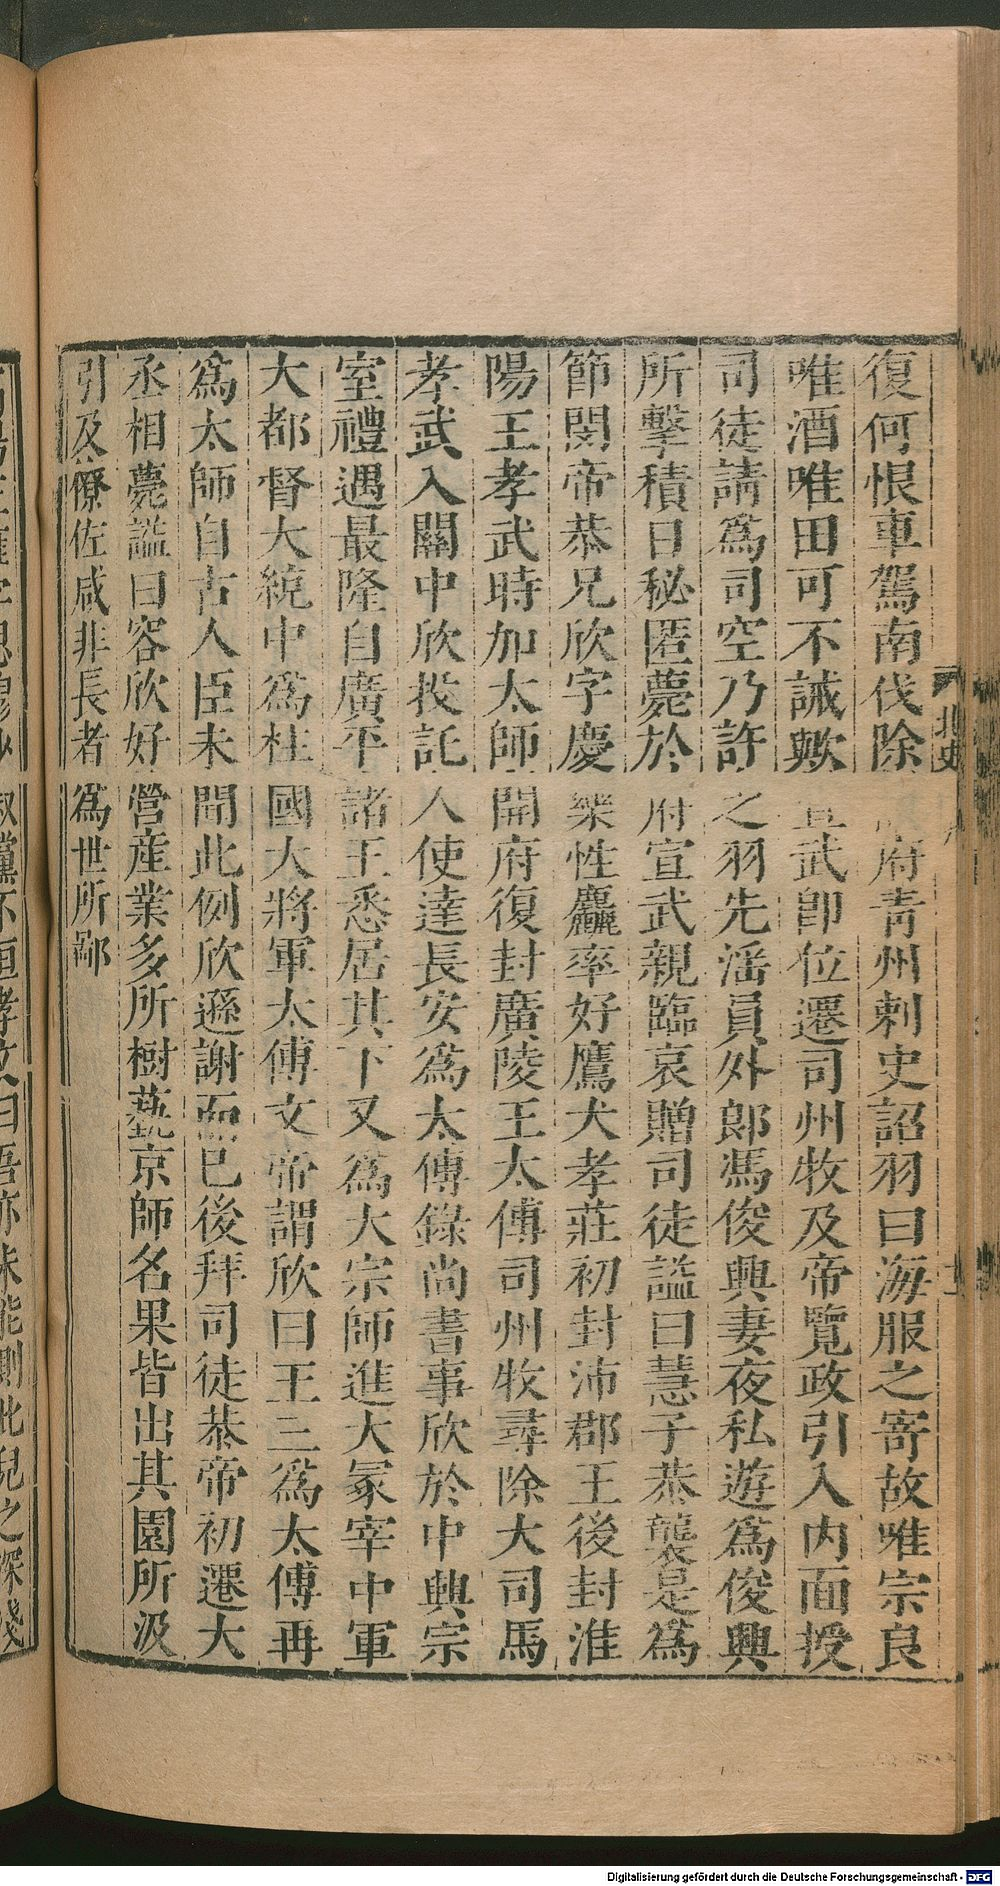 復何恨車駕南伐除開府青州刺史詔羽曰海服之寄故唯宗良
唯酒唯田可不誡歟宣武卽位遷司州牧及帝覽政引入内面授
司徒請爲司空乃許之羽先滛員外郎馮俊興妻夜私遊爲俊興
所擊積日秘匿薨於府宣武親臨哀贈司徒諡曰慧子恭襲是爲
節閔帝恭兄欣字慶樂性麤率好鷹犬孝莊初封沛郡王後封淮
陽王孝武時加太師開府復封廣陵王太傅司州牧尋除大司馬
孝武入關中欣投託人使達長安爲太傅錄尚書事欣於中興宗
室禮遇最隆自廣平諸王悉居其下又爲大宗師進大冢宰中軍
大都督大統中爲柱國大將軍太傅文帝謂欣曰王三爲太傅再
爲太師自古人臣未聞此例欣遜謝而已後拜司徒恭帝初遷大
丞相薨諡曰容欣好營産業多所樹蓺京師名果皆出其園所汲
引及僚佐咸非長者爲世所鄙
北史
叔黨不恒孝文曰吾亦未能測此兒之深淺
Digitalisierung gefördert durch die Deutsche Forschungsgemeinschaft - DFG